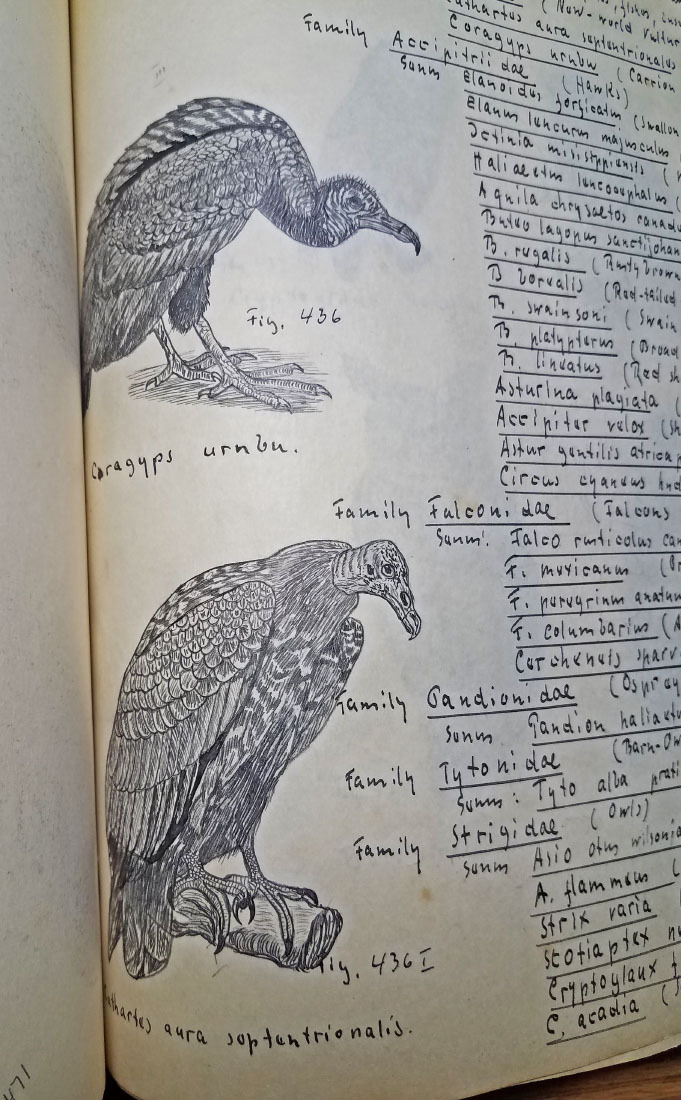 (New-world vultur
Cathartes aura septentrionalis
Coragyps urubu (Carrion
Family Accipitriidae (Hawks)
Sunm Elanoides forficatus (Swallow
Elanus leucurus majusculus
Ictinia misisippiensis (
Haliaetus leucocephalus (
Aquila chrysaetos canad
Buteo lagopus sanctijohan
B. regalis (Rusty brown
B borealis (Red-tailed
B. swainsoni (Swain
B. platypterus (Broad
B. lineatus (Red sh
Asturina plagiata (
Accipiter velox (sh
Astur gentilis atricap
Circus cyaneus hud
Fig. 436
Coragyps urubu.
Family Falconidae (Falcons
Sunm: Falco rusticolus can
F. mexicanus (Pr
F. peregrinus anatum
F. columbarius (
Cerchneis sparv
Family Pandionidae (Osprey
Sunm Pandion haliaetu
Family Tytonidae (Barn-Ow
Sunm: Tyto alba prati
Family Strigidae (Owls)
Sunm Asio otus wilsonia
A. flammeus (
Strix varia (
Scotiaptex n
Cryptoglaux f
C. acadia (
Fig. 436 I
Cathartes aura septentrionalis.
471